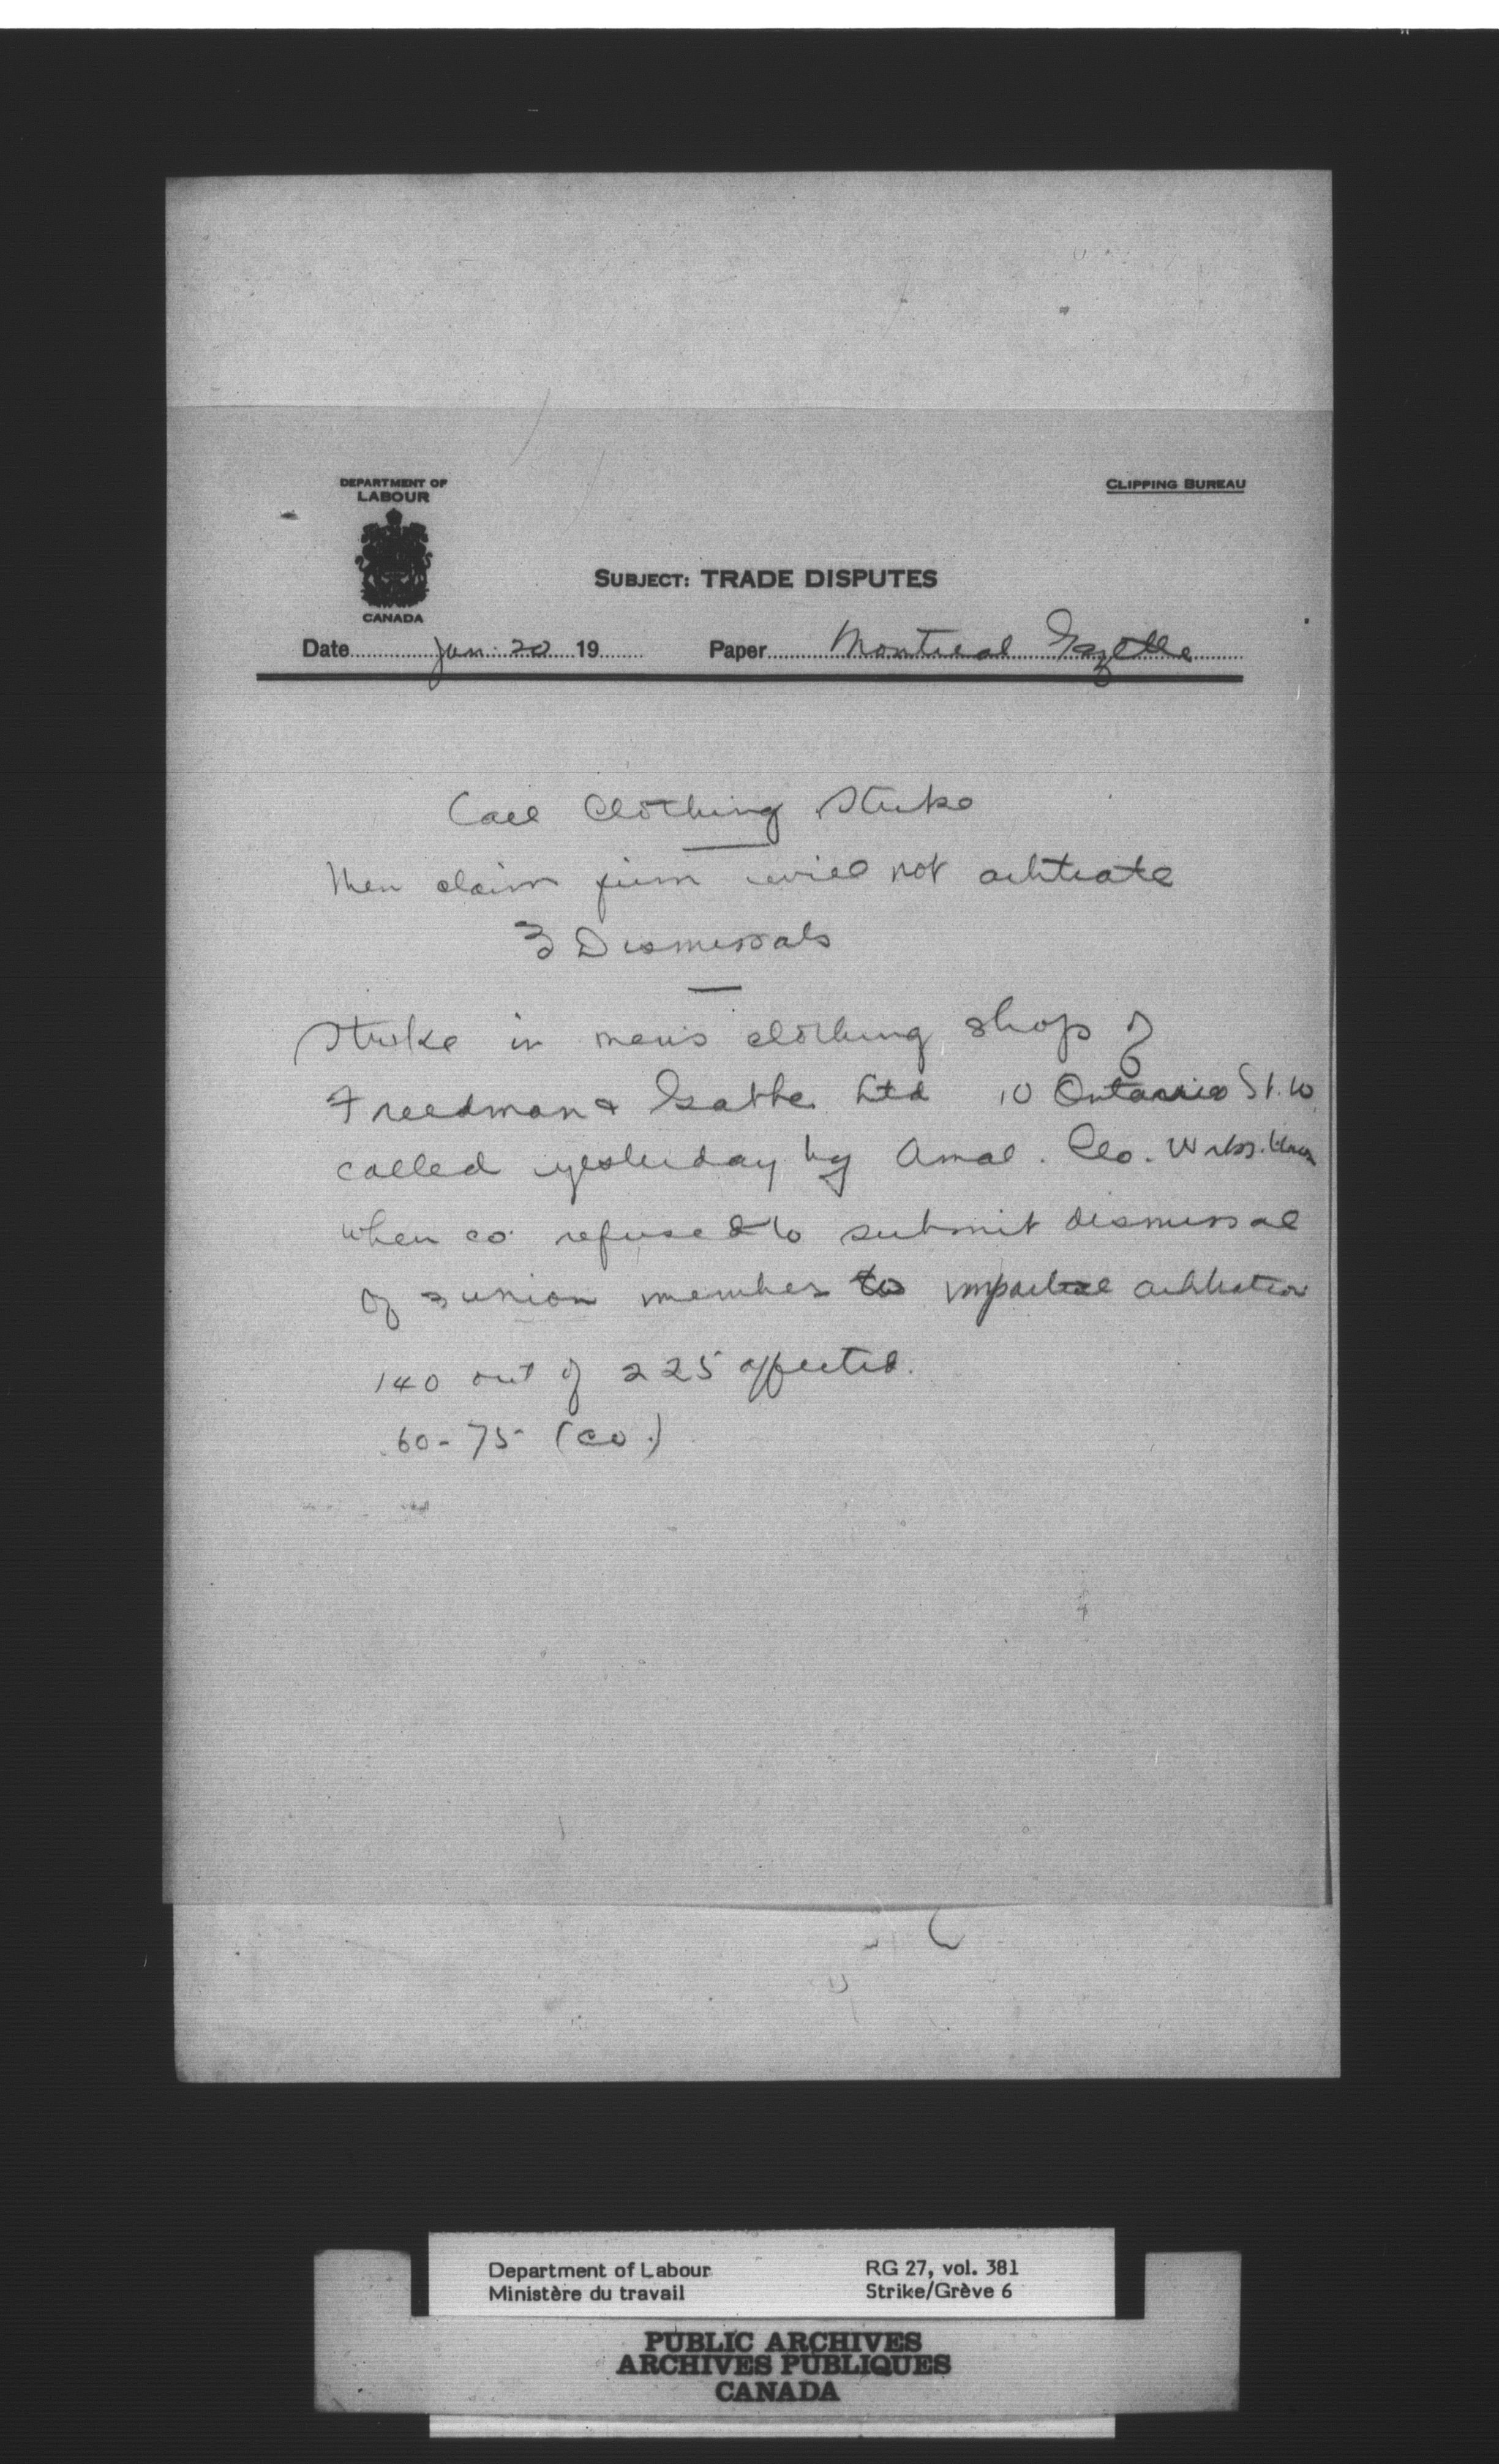 DEPARTMENT OF
LABOUR
CANADA
CLIPPING BUREAU
SUBJECT: TRADE DISPUTES
Date Jan. 20 19 Paper Montreal Gazette
Call Clothing Strike
Men claim firm will not arbitrate
3 Dismissals
Strike in men's clothing shop of
Freedman & Ltd 10 Ontario St. W
called yesterday by Amal. Clo. Wrks. Union
when co. refused to submit dismissal
of 3 union members to impartial arbitration
140 out of 225 affected.
60-75 (co.)
Department of Labour RG 27, vol. 381
Ministère du travail Strike/Grève 6
PUBLIC ARCHIVES
ARCHIVES PUBLIQUES
CANADA